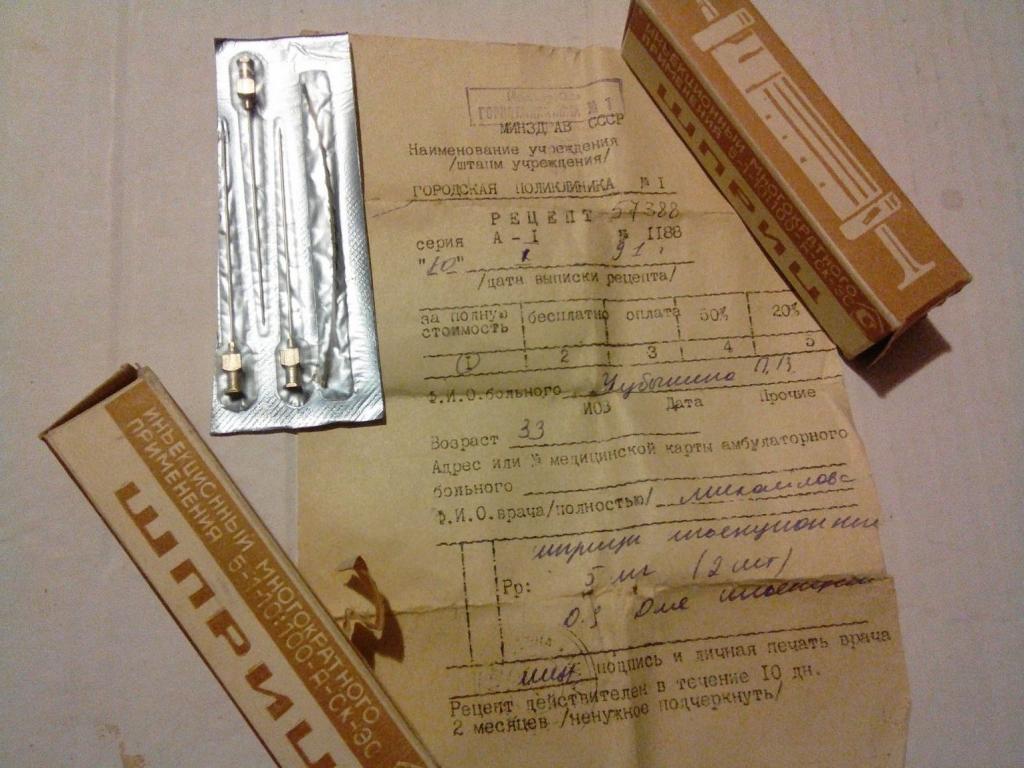 ГОРПОЛИКЛИНИКА № 1
МИНЗДРАВ СССР
Наименование учреждения
/штамп учреждения/
ГОРОДСКАЯ ПОЛИКЛИНИКА № I
РЕЦЕПТ 57388
серия А-I № II88
"10" X 91.
/дата выписки рецепта/
за полную стоимость бесплатно оплата 50% 20%
① 2 3 4 5
Ф.И.О.больного П.В.
ИОЗ Дата Прочие
Возраст 33
Адрес или № медицинской карты амбулаторного
больного
Ф.И.О.врача/полностью/ Михайлова
шприцы инъекционные
Рр: 5 мг (2 шт)
D.S Для инъекций
подпись и личная печать врача
Рецепт действителен в течение IO дн.
2 месяцев /ненужное подчеркнуть/
ИНЪЕКЦИОННЫЙ МНОГОКРАТНОГО
ПРИМЕНЕНИЯ 5-1-10:100-Д-СК-ЭС
ШПРИЦ
ИНЪЕКЦИОННЫЙ МНОГОКРАТНОГО
ПРИМЕНЕНИЯ 5-1-10:100-Д-СК-ЭС
ШПРИЦ